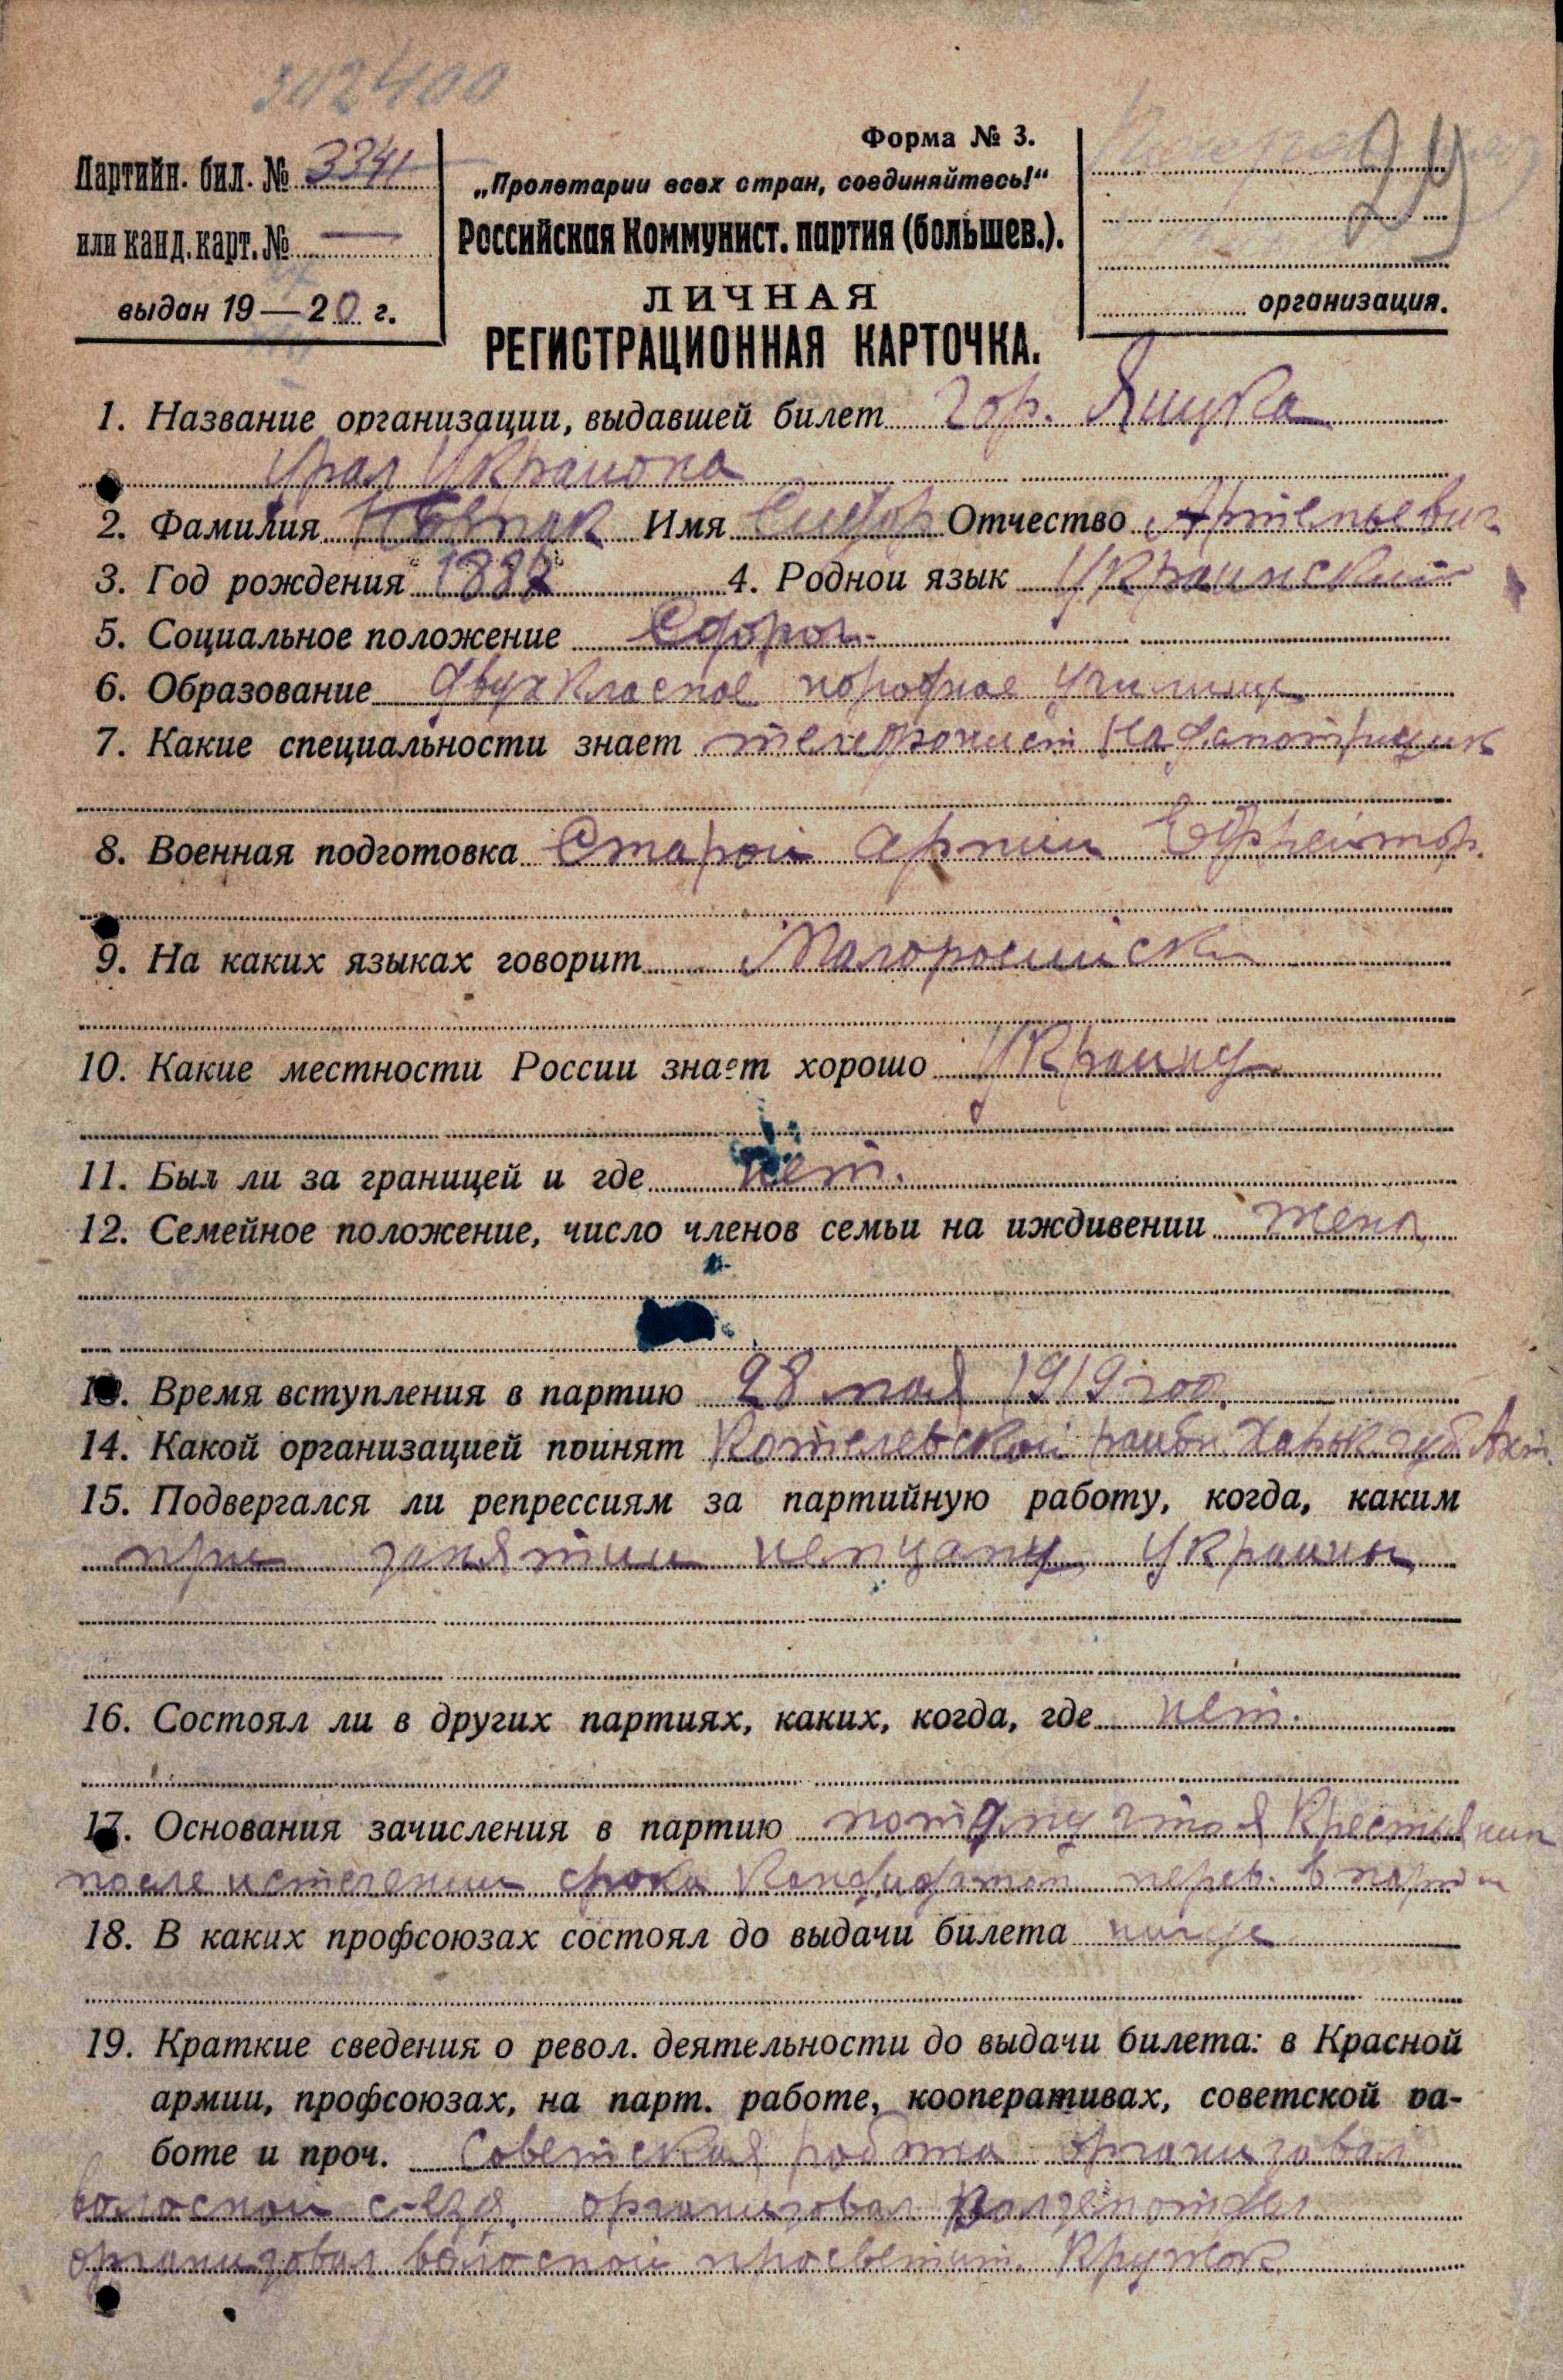 302400
Партийн. бил. № 3341
или канд. карт. № —
выдан 19—20 г.
Форма № 3.
„Пролетарии всех стран, соединяйтесь!“
Российская Коммунист. партия (большев.).
ЛИЧНАЯ
РЕГИСТРАЦИОННАЯ КАРТОЧКА.
организация.
1. Название организации, выдавшей билет гор.
Урал Укрраиона
2. Фамилия Ковпак Имя Сидор Отчество Артемьевич
3. Год рождения 1887 4. Родной язык Украинский
5. Социальное положение
6. Образование двухкласное народное училище
7. Какие специальности знает телефонист
8. Военная подготовка Старой армии Ефрейтор.
9. На каких языках говорит Малоросийски
10. Какие местности России знает хорошо Украину
11. Был ли за границей и где нет.
12. Семейное положение, число членов семьи на иждивении жена
13. Время вступления в партию 28 мая 1919 год.
14. Какой организацией принят Котелевской Харьк. губ. Ахт.
15. Подвергался ли репрессиям за партийную работу, когда, каким
при занятии немцами Украины
16. Состоял ли в других партиях, каких, когда, где нет.
17. Основания зачисления в партию потому что я Крестьянин
после истечении срока Кандидатом перев. в парти
18. В каких профсоюзах состоял до выдачи билета нигде
19. Краткие сведения о револ. деятельности до выдачи билета: в Красной
армии, профсоюзах, на парт. работе, кооперативах, советской ра-
боте и проч. Советская работа организовал
волосной с-езд. организовал Волземотдел
организовал волосной просветит. Кружок